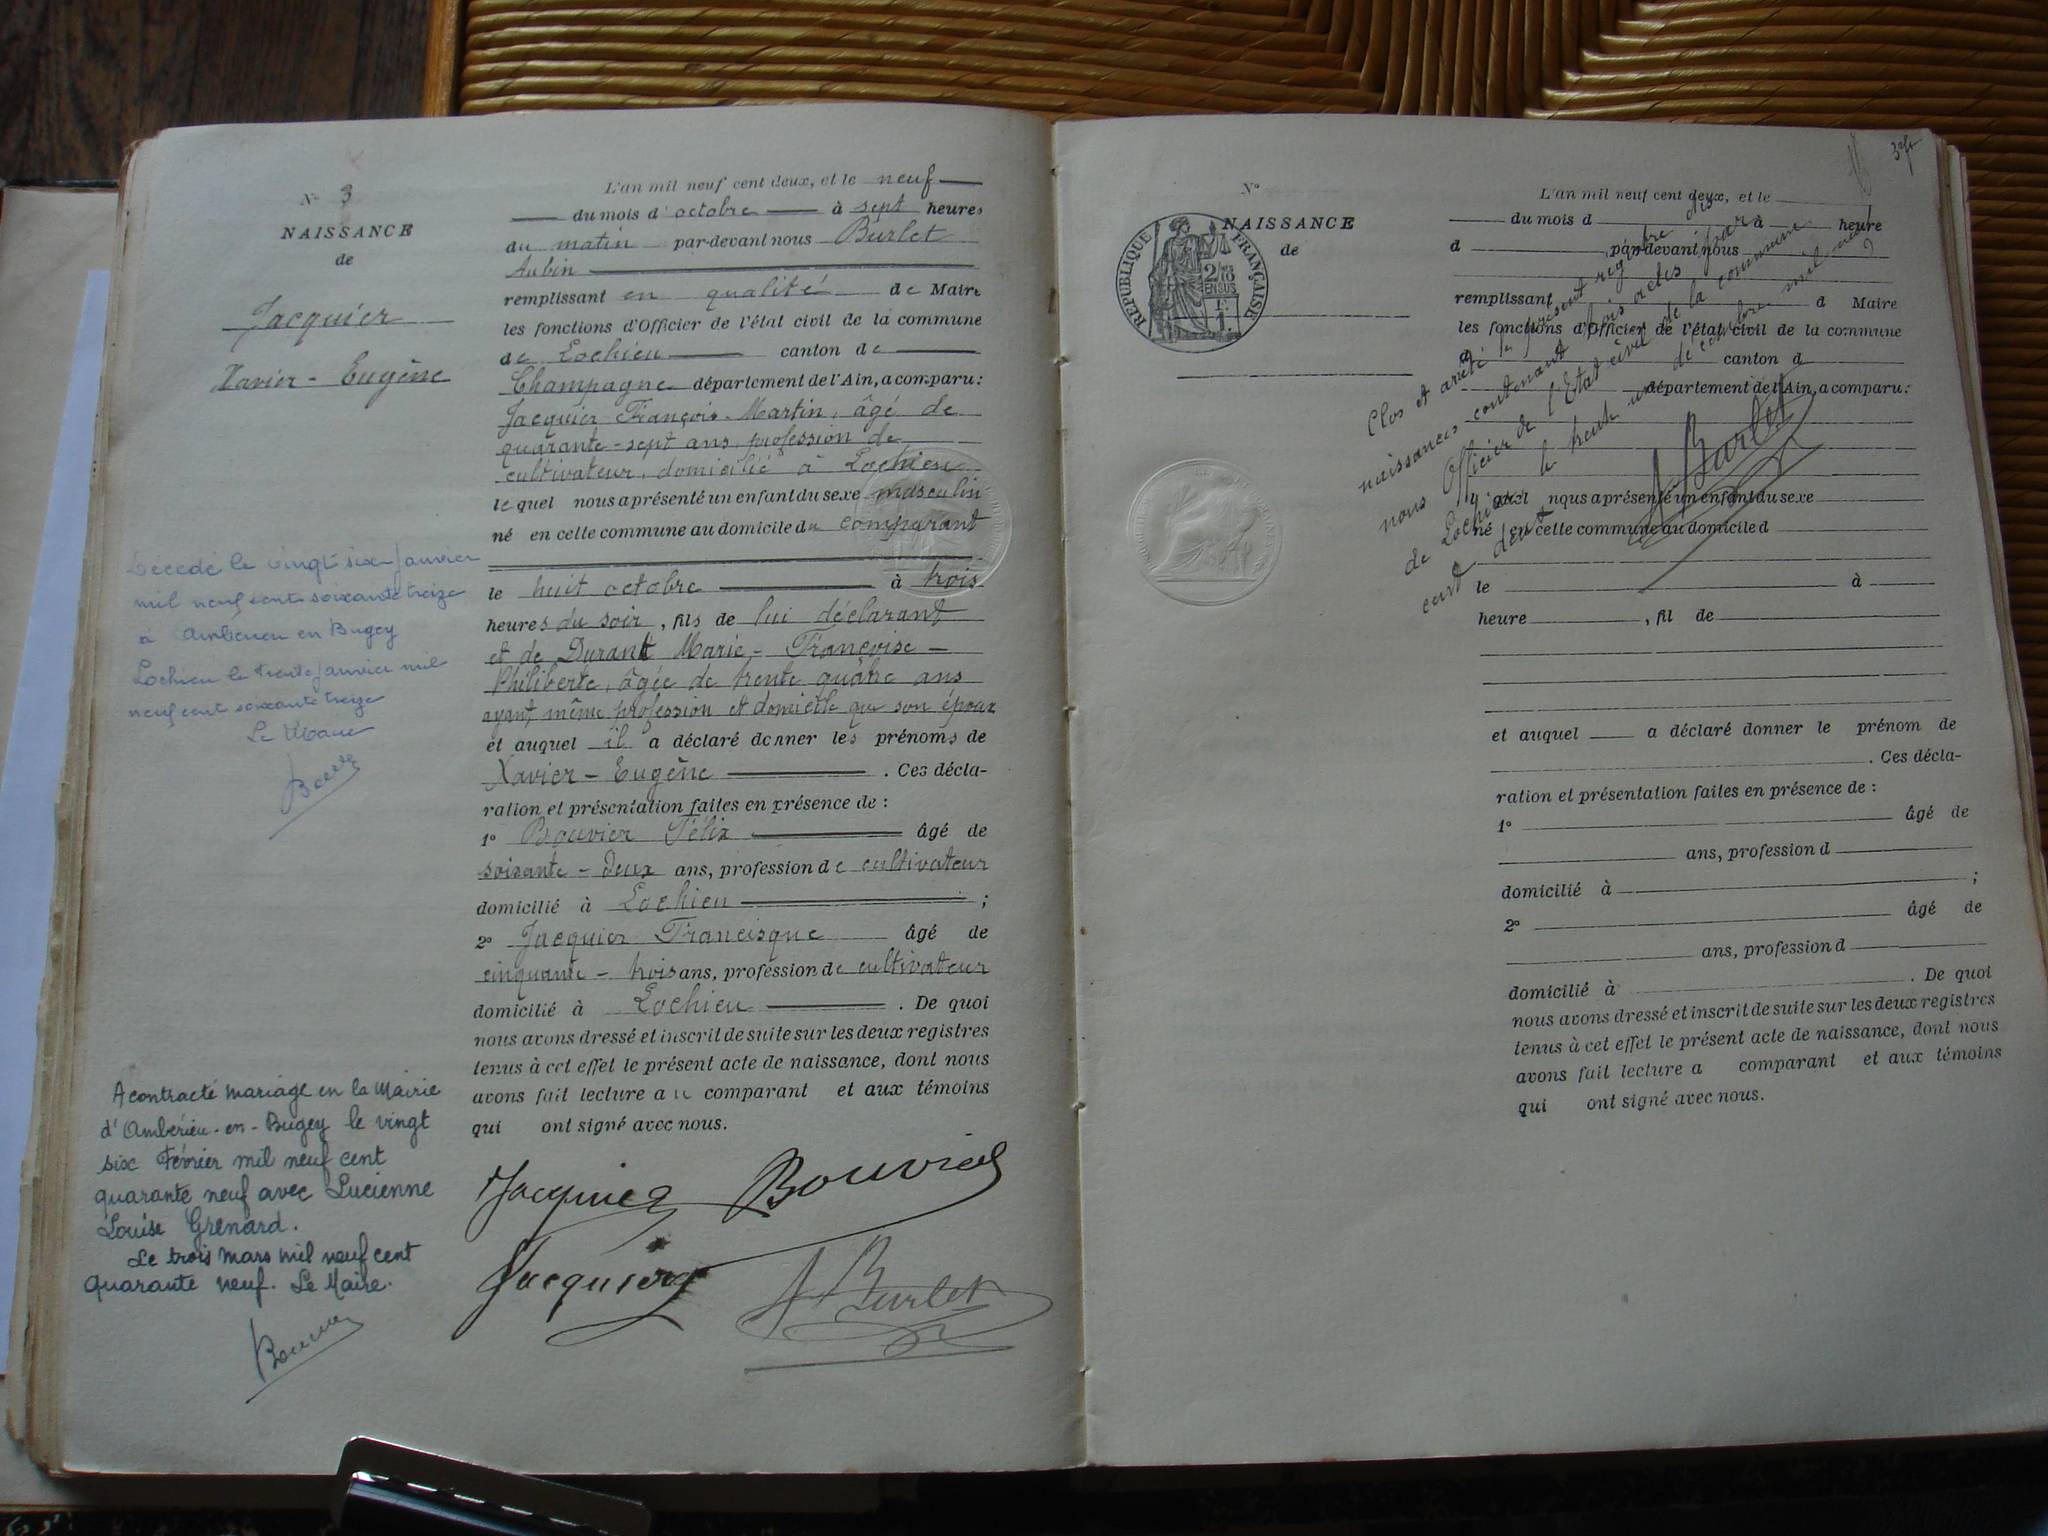 N° 3
NAISSANCE
de
Jacquier
Xavier - Eugène
L'an mil neuf cent deux, et le neuf
du mois d'octobre à sept heures
du matin par-devant nous Burlet
Aubin
remplissant en qualité de Maire
les fonctions d'Officier de l'état civil de la commune
de Lochieu canton de
Champagne département de l'Ain, a comparu:
Jacquier François-Martin, âgé de
quarante-sept ans, profession de
cultivateur, domicilié à Lochieu
lequel nous a présenté un enfant du sexe masculin
né en cette commune au domicile du comparant
le huit octobre à trois
heures du soir, fils de lui déclarant
et de Durant Marie-Françoise-
Philiberte, âgée de trente quatre ans
ayant même profession et domicile que son époux
et auquel il a déclaré donner les prénoms de
Xavier-Eugène . Ces décla-
ration et présentation faites en présence de :
1° Bouvier Félix âgé de
soixante-deux ans, profession de cultivateur
domicilié à Lochieu ;
2° Jacquier Francisque âgé de
cinquante-trois ans, profession de cultivateur
domicilié à Lochieu . De quoi
nous avons dressé et inscrit de suite sur les deux registres
tenus à cet effet le présent acte de naissance, dont nous
avons fait lecture au comparant et aux témoins
qui ont signé avec nous.
Jacquier Bouvier
Jacquier A Burlet
Décédé le vingt six Janvier
mil neuf cent soixante treize
à Ambérieu en Bugey
Lochieu le trente janvier mil
neuf cent soixante treize
Le Maire
A contracté mariage en la Mairie
d'Ambérieu-en-Bugey le vingt
six Février mil neuf cent
quarante neuf avec Lucienne
Louise Grenard.
Le trois mars mil neuf cent
quarante neuf. Le Maire.
N°
NAISSANCE
de
RÉPUBLIQUE FRANÇAISE
2/10 EN SUS
1F
L'an mil neuf cent deux, et le
du mois d à heure
d par-devant nous
remplissant d Maire
les fonctions d'Officier de l'état civil de la commune
d canton d
département de l'Ain, a comparu:
l quel nous a présenté un enfant du sexe
né en cette commune au domicile d
le à
heure , fil de
et auquel a déclaré donner le prénom de
. Ces décla-
ration et présentation faites en présence de :
1° âgé de
ans, profession d
domicilié à ;
2° âgé de
ans, profession d
domicilié à . De quoi
nous avons dressé et inscrit de suite sur les deux registres
tenus à cet effet le présent acte de naissance, dont nous
avons fait lecture a comparant et aux témoins
qui ont signé avec nous.
Clos et arrêté le présent registre des
naissances contenant trois actes par
nous Officier de l'Etat civil de la commune
de Lochieu le trente un décembre mil neuf
cent deux
A Burlet